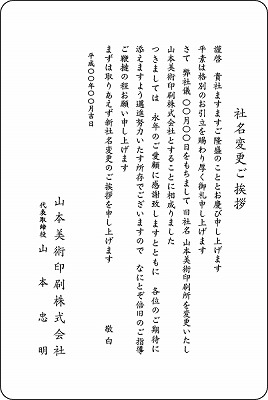 社名変更ご挨拶
謹啓　貴社ますますご隆盛のこととお慶び申し上げます
平素は格別のお引立を賜わり厚く御礼申し上げます
さて　弊社議　〇〇月〇〇日をもちまして旧社名　山本美術印刷所を変更いたし
山本美術印刷株式会社とすることに相成りました
つきましては　永年のご愛顧に感謝致しますとともに　各位のご期待に
添えますよう邁進努力いたす所存でございますので　なにとぞ倍旧のご指導
ご鞭撻の程お願い申し上げます
まずは取りあえず新社名変更のご挨拶を申し上げます
敬白
平成〇〇年〇〇月吉日
山本美術印刷株式会社
代表取締役　山本忠明